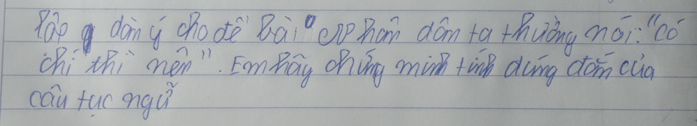 lập dàn ý cho đề bài "Nhân dân ta thường nói: "có
chí thì nên". Em hãy chứng minh tính đúng đắn của
câu tục ngữ